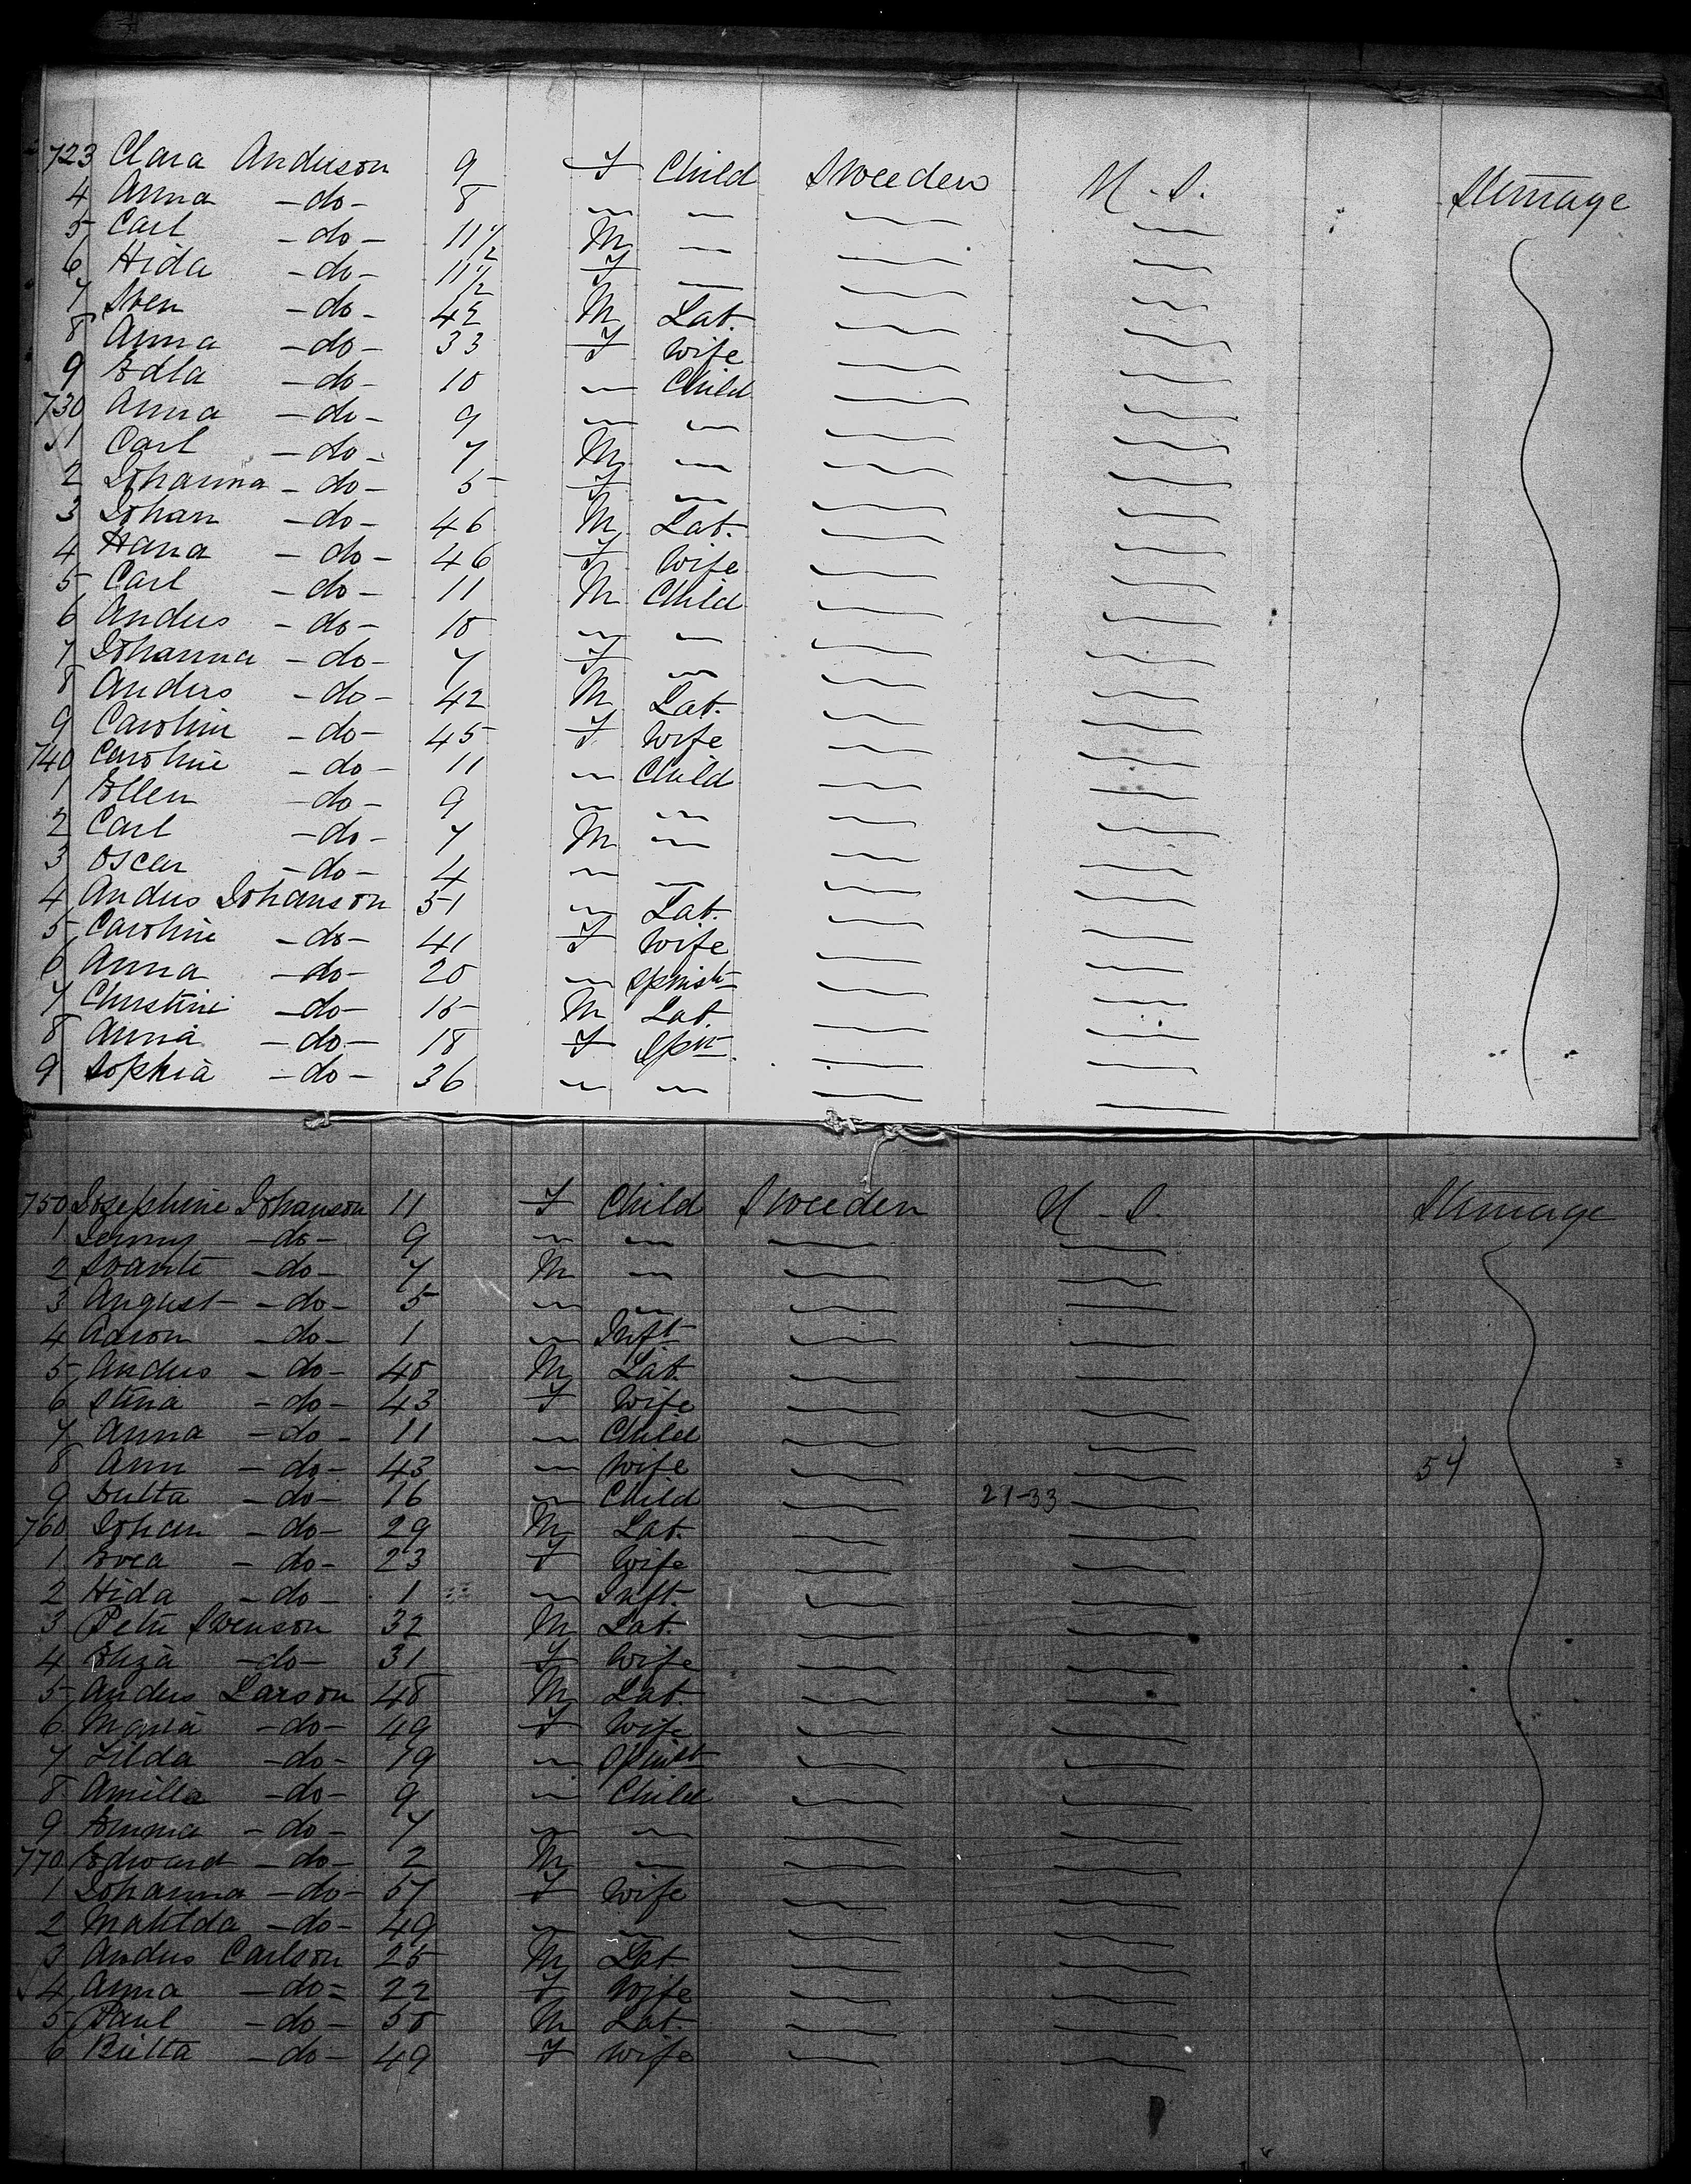 723 Clara Anderson 9 F Child Sweeden U-S. Steerage
4 Anna -do- 8 " "
5 Carl -do- 11½ M "
6 Hida -do- 11½ F "
7 Sven -do- 42 M Lab.
8 Anna -do- 33 F Wife
9 Edla -do- 10 " Child
730 Anna -do- 9 " "
1 Carl -do- 7 M "
2 Johanna -do- 5 F "
3 Johan -do- 46 M Lab.
4 Hana -do- 46 F Wife
5 Carl -do- 11 M Child
6 Anders -do- 10 " "
7 Johanna -do- 7 F "
8 Anders -do- 42 M Lab.
9 Caroline -do- 45 F Wife
740 Caroline -do- 11 " Child
1 Ellen -do- 9 " "
2 Carl -do- 7 M "
3 Oscar -do- 4 " "
4 Anders Johanson 51 " Lab.
5 Caroline -do- 41 F Wife
6 Anna -do- 20 " Spinst
7 Christine -do- 15 M Lab
8 Anna -do- 18 F Spin
9 Sophia -do- 36 " "
750 Josephine Johanson 11 F Child Sweeden U-S. Steerage
1 Jenny -do- 9 " "
2 Svante -do- 7 M "
3 August -do- 5 " "
4 Aaron -do- 1 " Inft
5 Anders -do- 40 M Lab.
6 Stina -do- 43 F Wife
7 Anna -do- 11 " Child
8 Ann -do- 43 " Wife 54
9 -do- 16 " Child 21-33
760 Johan -do- 29 M Lab.
1 Evea -do- 23 F Wife
2 Hida -do- 1 " Inft.
3 Peter Swenson 32 M Lab.
4 Eliza -do- 31 F Wife
5 Anders Larson 48 M Lab.
6 Maria -do- 49 F Wife
7 Lilda -do- 19 " Spinst
8 Amilla -do- 9 " Child
9 Emma -do- 7 " "
770 Edward -do- 2 M "
1 Johanna -do- 57 F Wife
2 Matilda -do- 49 " "
3 Anders Carlson 25 M Lab
4 Anna -do- 22 F Wife
5 Paul -do- 50 M Lab.
6 Britta -do- 49 F Wife